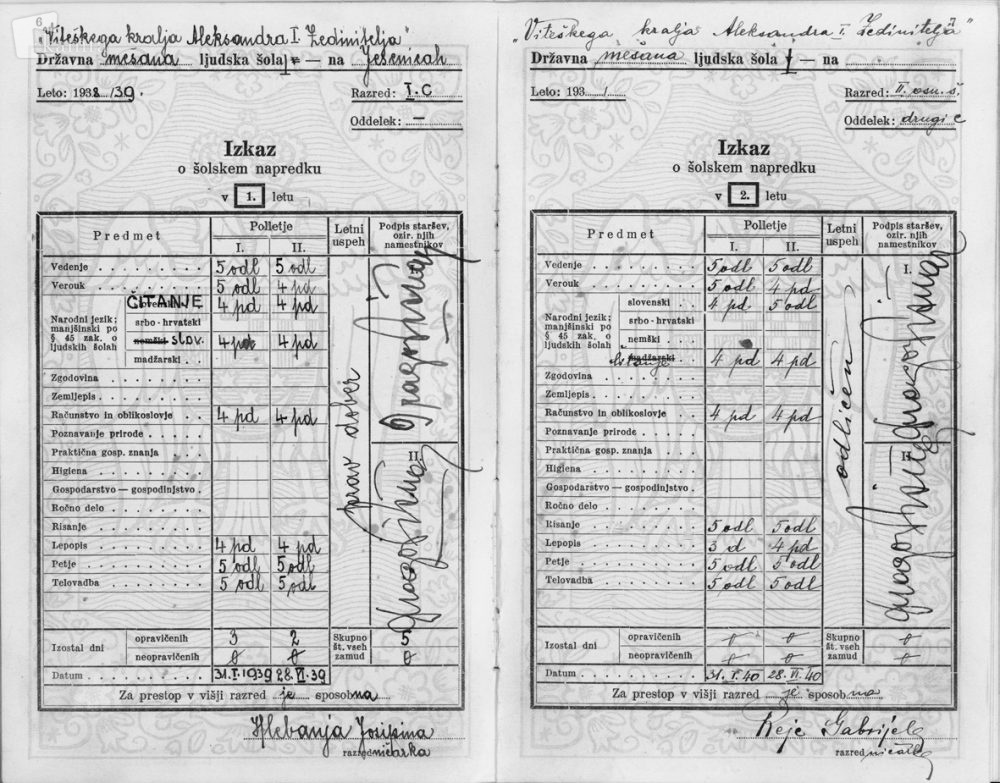 "Viteškega kralja Aleksandra I. Zedinitelja"
Državna mešana ljudska šola I — na Jesenicah
Leto: 1938/39. Razred: I. C
Oddelek: —
Izkaz
o šolskem napredku
v 1. letu
Predmet Polletje Letni uspeh Podpis staršev, ozir. njih namestnikov
I. II.
Vedenje 5 odl 5 odl
Verouk 5 odl 4 pd
Narodni jezik; manjšinski po § 45 zak. o ljudskih šolah
slovenski ČITANJE 4 pd 4 pd
srbo-hrvatski
nemški slov. 4 pd 4 pd
madžarski
Zgodovina
Zemljepis
Računstvo in oblikoslovje 4 pd 4 pd
Poznavanje prirode
Praktična gosp. znanja
Higiena
Gospodarstvo — gospodinjstvo
Ročno delo
Risanje
Lepopis 4 pd 4 pd
Petje 5 odl 5 odl
Telovadba 5 odl 5 odl
prav dober
II.
Izostal dni opravičenih 3 2 Skupno št. vseh zamud 5
neopravičenih 0 0 0
Datum 31. I. 1939 28. VI. 39
Za prestop v višji razred je sposobna
Hlebanja Josipina
razredničarka
"Viteškega kralja Aleksandra I. Zedinitelja"
Državna mešana ljudska šola I — na
Leto: 193 / Razred: II. osn. š.
Oddelek: drugi c
Izkaz
o šolskem napredku
v 2. letu
Predmet Polletje Letni uspeh Podpis staršev, ozir. njih namestnikov
I. II.
Vedenje 5 odl 5 odl
Verouk 5 odl 4 pd
Narodni jezik; manjšinski po § 45 zak. o ljudskih šolah
slovenski 4 pd 5 odl
srbo-hrvatski
nemški
madžarski čitanje 4 pd 4 pd
Zgodovina
Zemljepis
Računstvo in oblikoslovje 4 pd 4 pd
Poznavanje prirode
Praktična gosp. znanja
Higiena
Gospodarstvo — gospodinjstvo
Ročno delo
Risanje 5 odl 5 odl
Lepopis 3 d 4 pd
Petje 5 odl 5 odl
Telovadba 5 odl 5 odl
odličen
I.
II.
Izostal dni opravičenih 0 0 Skupno št. vseh zamud 0
neopravičenih 0 0 0
Datum 31. I. 40 28. VI. 40
Za prestop v višji razred je sposobna
Reje Gabrijela
razredničarka